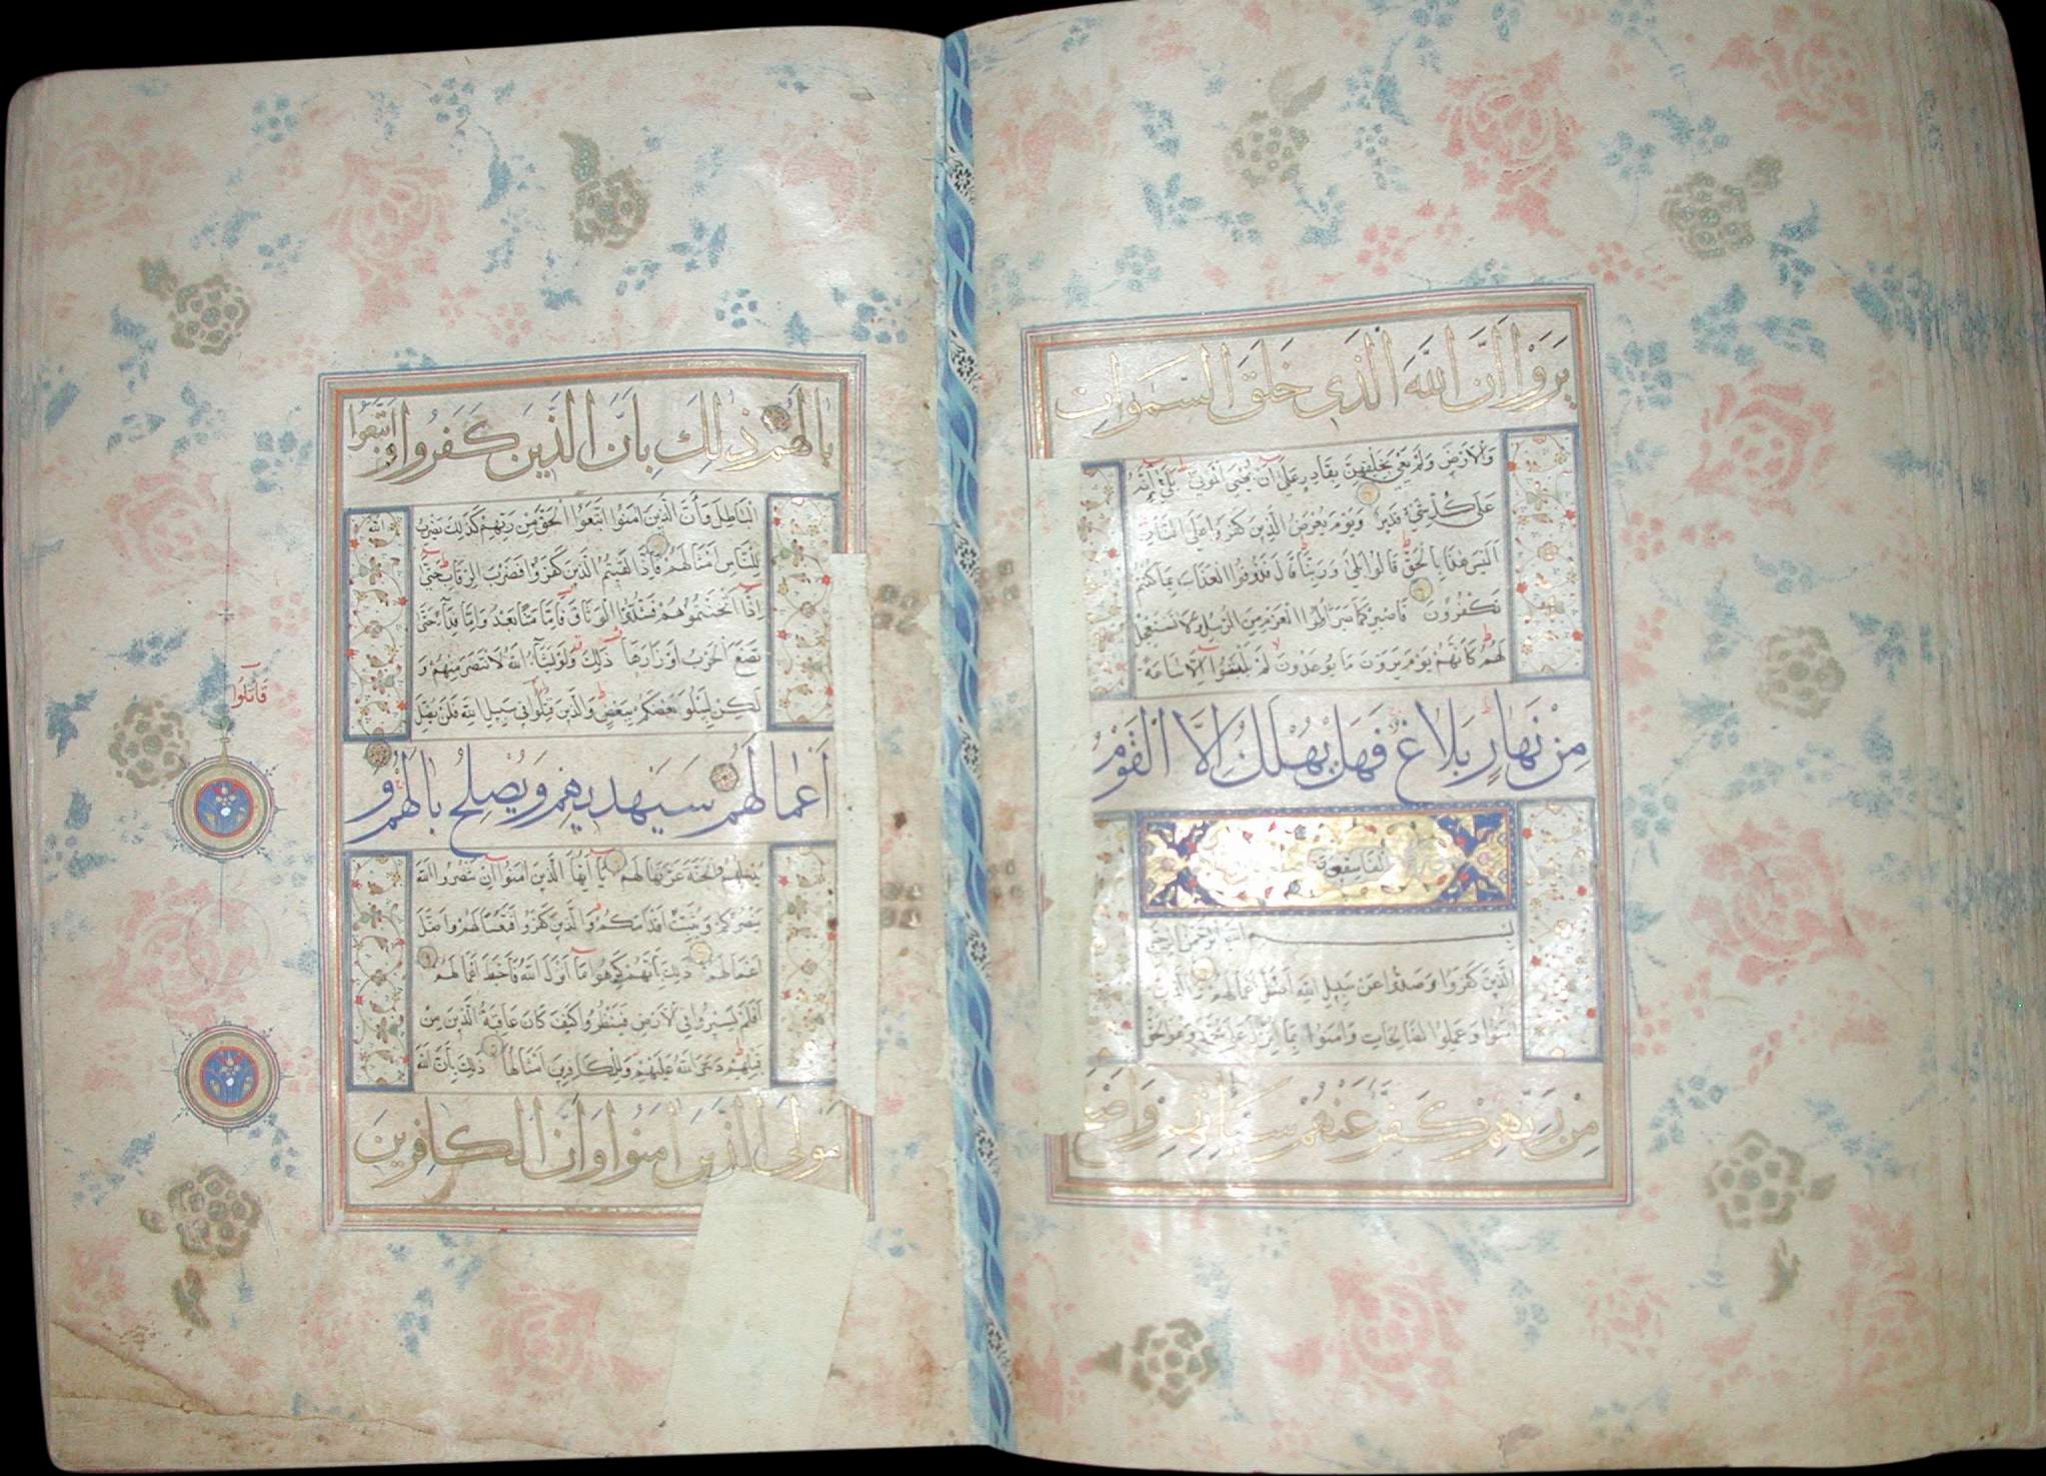 يَرَوْا أَنَّ اللَّهَ الَّذِي خَلَقَ السَّمَوَاتِ
وَالْأَرْضَ وَلَمْ يَعْيَ بِخَلْقِهِنَّ بِقَادِرٍ عَلَى أَنْ يُحْيِيَ الْمَوْتَى بَلَى إِنَّهُ
عَلَى كُلِّ شَيْءٍ قَدِيرٌ وَيَوْمَ يُعْرَضُ الَّذِينَ كَفَرُوا عَلَى النَّارِ
أَلَيْسَ هَذَا بِالْحَقِّ قَالُوا بَلَى وَرَبِّنَا قَالَ فَذُوقُوا الْعَذَابَ بِمَا كُنْتُمْ
تَكْفُرُونَ فَاصْبِرْ كَمَا صَبَرَ أُولُوا الْعَزْمِ مِنَ الرُّسُلِ وَلَا تَسْتَعْجِلْ
لَهُمْ كَأَنَّهُمْ يَوْمَ يَرَوْنَ مَا يُوعَدُونَ لَمْ يَلْبَثُوا إِلَّا سَاعَةً
مِنْ نَهَارٍ بَلَاغٌ فَهَلْ يُهْلَكُ إِلَّا الْقَوْمُ
بِسْمِ اللَّهِ الرَّحْمَنِ الرَّحِيمِ
الَّذِينَ كَفَرُوا وَصَدُّوا عَنْ سَبِيلِ اللَّهِ أَضَلَّ أَعْمَالَهُمْ وَالَّذِينَ
آمَنُوا وَعَمِلُوا الصَّالِحَاتِ وَآمَنُوا بِمَا نُزِّلَ عَلَى مُحَمَّدٍ وَهُوَ الْحَقُّ
مِنْ رَبِّهِمْ كَفَّرَ عَنْهُمْ سَيِّئَاتِهِمْ وَأَصْلَحَ
بَالَهُمْ ذَلِكَ بِأَنَّ الَّذِينَ كَفَرُوا اتَّبَعُوا
الْبَاطِلَ وَأَنَّ الَّذِينَ آمَنُوا اتَّبَعُوا الْحَقَّ مِنْ رَبِّهِمْ كَذَلِكَ يَضْرِبُ
لِلنَّاسِ أَمْثَالَهُمْ فَإِذَا لَقِيتُمُ الَّذِينَ كَفَرُوا فَضَرْبَ الرِّقَابِ حَتَّى
إِذَا أَثْخَنْتُمُوهُمْ فَشُدُّوا الْوَثَاقَ فَإِمَّا مَنًّا بَعْدُ وَإِمَّا فِدَاءً حَتَّى
تَضَعَ الْحَرْبُ أَوْزَارَهَا ذَلِكَ وَلَوْ يَشَاءُ اللَّهُ لَانْتَصَرَ مِنْهُمْ وَ
لَكِنْ لِيَبْلُوَ بَعْضَكُمْ بِبَعْضٍ وَالَّذِينَ قُتِلُوا فِي سَبِيلِ اللَّهِ فَلَنْ يُضِلَّ
قَاتَلُوا
أَعْمَالَهُمْ سَيَهْدِيهِمْ وَيُصْلِحُ بَالَهُمْ وَ
يُدْخِلُهُمُ الْجَنَّةَ عَرَّفَهَا لَهُمْ يَا أَيُّهَا الَّذِينَ آمَنُوا إِنْ تَنْصُرُوا اللَّهَ
يَنْصُرْكُمْ وَيُثَبِّتْ أَقْدَامَكُمْ وَالَّذِينَ كَفَرُوا فَتَعْسًا لَهُمْ وَأَضَلَّ
أَعْمَالَهُمْ ذَلِكَ بِأَنَّهُمْ كَرِهُوا مَا أَنْزَلَ اللَّهُ فَأَحْبَطَ أَعْمَالَهُمْ
أَفَلَمْ يَسِيرُوا فِي الْأَرْضِ فَيَنْظُرُوا كَيْفَ كَانَ عَاقِبَةُ الَّذِينَ مِنْ
قَبْلِهِمْ دَمَّرَ اللَّهُ عَلَيْهِمْ وَلِلْكَافِرِينَ أَمْثَالُهَا ذَلِكَ بِأَنَّ اللَّهَ
مَوْلَى الَّذِينَ آمَنُوا وَأَنَّ الْكَافِرِينَ